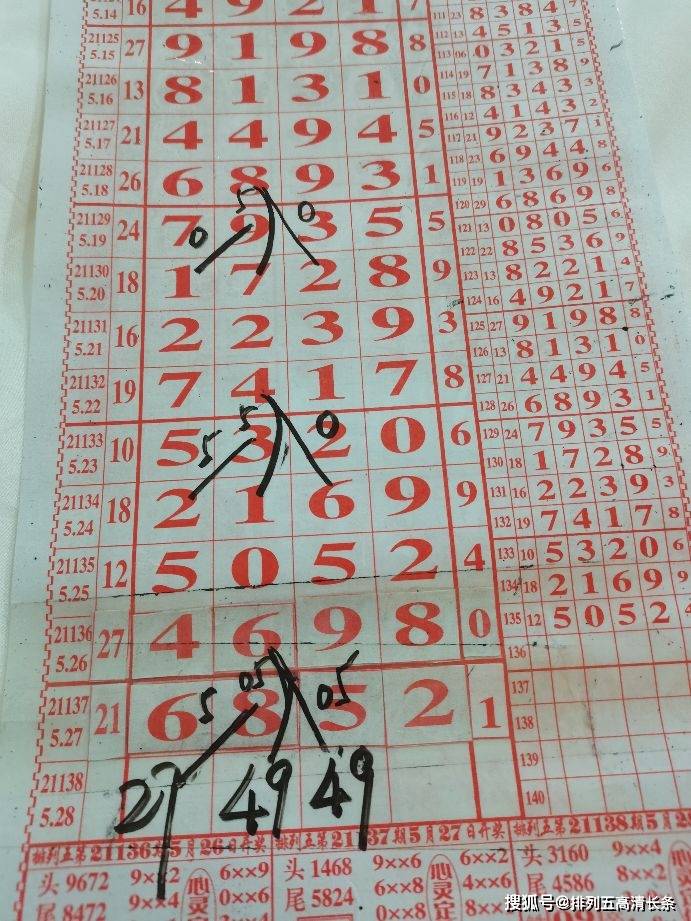 5.14 16 4 9 2 1 7
21125 5.15 27 9 1 9 8 8
21126 5.16 13 8 1 3 1 0
21127 5.17 21 4 4 9 4 5
21128 5.18 26 6 8 9 3 1
5 0 0
21129 5.19 24 7 9 3 5 5
21130 5.20 18 1 7 2 8 9
21131 5.21 16 2 2 3 9 3
21132 5.22 19 7 4 1 7 8
5 5 0
21133 5.23 10 5 3 2 0 6
21134 5.24 18 2 1 6 9 9
21135 5.25 12 5 0 5 2 4
21136 5.26 27 4 6 9 8 0
5 05 05
21137 5.27 21 6 8 5 2 1
21138 5.28 27 49 49
111 23 8 3 8 4 7
112 13 4 5 1 3 5
113 06 0 3 2 1 5
114 19 7 1 3 8 9
115 18 8 3 4 3 3
116 12 4 1 4 3 2
117 21 9 2 3 7 1
118 23 6 9 4 4 8
119 19 1 3 6 9 6
120 29 6 8 6 9 8
121 13 0 8 0 5 6
122 22 8 5 3 6 9
123 13 8 2 2 1 4
124 16 4 9 2 1 7
125 27 9 1 9 8 8
126 13 8 1 3 1 0
127 21 4 4 9 4 5
128 26 6 8 9 3 1
129 24 7 9 3 5 5
130 18 1 7 2 8 9
131 16 2 2 3 9 3
132 19 7 4 1 7 8
133 10 5 3 2 0 6
134 18 2 1 6 9 9
135 12 5 0 5 2 4
136
137
138
139
140
排列五第21136期5月26日开奖 排列五第21137期5月27日开奖 排列五第21138期5月28
头 9672 6××9 头 1468 9××6 6××2 头 3160 9××4
尾 8472 9××4 0××6 尾 5824 6××8 4××6 尾 4586 8××2
搜狐号@排列五高清长条